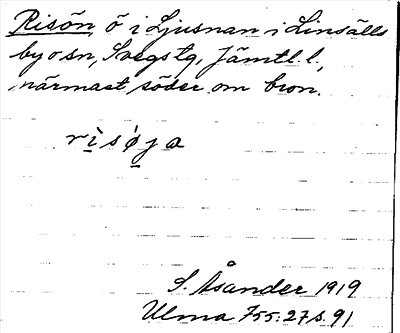 Risön ö i Ljusnan i Linsälls
by o sn, Svegs tg, Jämtl. l.,
närmast söder om bron.
risøja
S. Åsander 1919
Ulma 755:27 s. 91